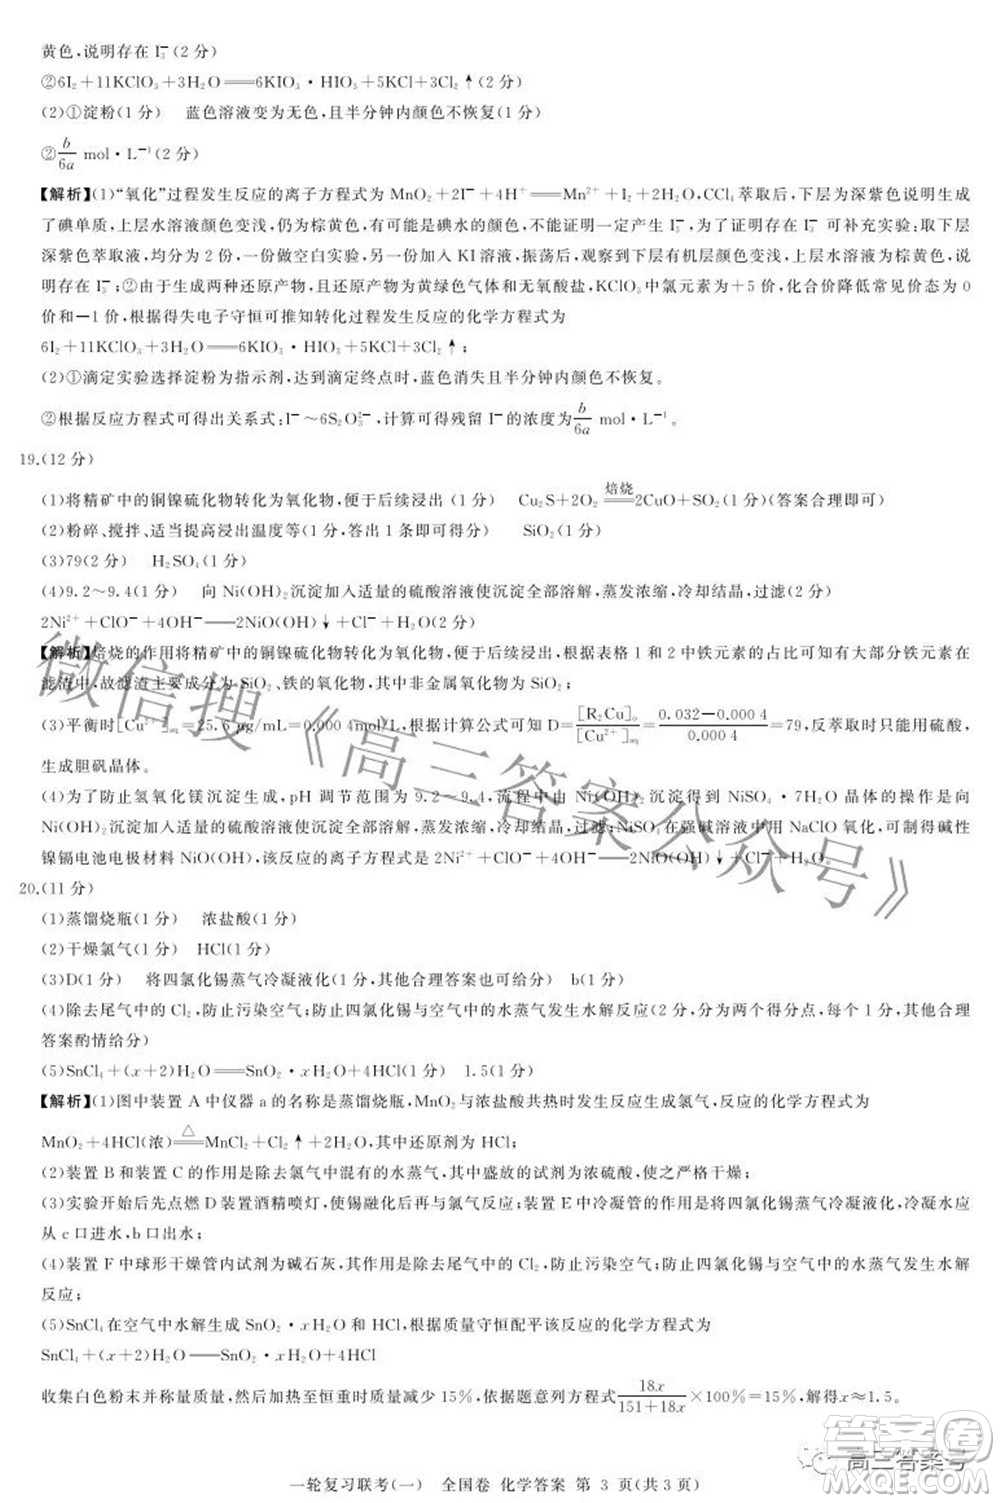 黄色,说明存在 I₃⁻(2 分)
②6I₂+11KClO₃+3H₂O══6KIO₃·HIO₃+5KCl+3Cl₂↑(2 分)
(2)①淀粉(1 分)  蓝色溶液变为无色,且半分钟内颜色不恢复(2 分)
②b/6a mol·L⁻¹(2 分)
【解析】(1)“氧化”过程发生反应的离子方程式为 MnO₂+2I⁻+4H⁺══Mn²⁺+I₂+2H₂O,CCl₄ 萃取后,下层为深紫色说明生成
了碘单质,上层水溶液颜色变浅,仍为棕黄色,可能是碘水的颜色,不能证明一定产生 I₃⁻,为了证明存在 I₃⁻ 可补充实验:取下层
深紫色萃取液,均分为 2 份,一份做空白实验,另一份加入 KI 溶液,振荡后,观察到下层有机层颜色变浅,上层为棕黄色,说明存
在 I₃⁻;②由于生成两种还原产物,且还原产物为黄绿色气体和无氧酸盐,KClO₃ 中氯元素为+5 价,化合价降低常见价态为 0
价和-1 价,根据得失电子守恒可推知转化过程发生反应的化学方程式为
6I₂+11KClO₃+3H₂O══6KIO₃·HIO₃+5KCl+3Cl₂↑;
(2)①滴定实验选择淀粉为指示剂,达到滴定终点时,蓝色消失且半分钟内颜色不恢复。
②根据反应方程式可得出关系式:I⁻~6S₂O₃²⁻,计算可得残留 I⁻的浓度为b/6a mol·L⁻¹。
19.(12 分)
(1)将精矿中的铜镍硫化物转化为氧化物,便于后续浸出(1 分)  Cu₂S+2O₂ ══焙烧 2CuO+SO₂(2分)(答案合理即可)
(2)粉碎、搅拌、适当提高浸出温度等(1 分,答出 1 条即可得分)  SiO₂(1 分)
(3)79(2 分)  H₂SO₄(1 分)
(4)9.2~9.4(1 分)  向 Ni(OH)₂沉淀加入适量的硫酸溶液使沉淀全部溶解,蒸发浓缩,冷却结晶,过滤(2 分)
2Ni²⁺+ClO⁻+4OH⁻══2NiO(OH)↓+Cl⁻+H₂O(2 分)
【解析】焙烧的作用将精矿中的铜镍硫化物转化为氧化物,便于后续浸出,根据表格 1 和 2 中铁元素的占比可知有大部分铁元素在
滤渣中,故滤渣主要成分为 SiO₂、铁的氧化物,其中非金属氧化物为 SiO₂;
(3)平衡时[Cu²⁺]=25.6 μg/mL=0.000 4mol/L,根据计算公式可知 D=[R₂Cu]ₒ/[Cu²⁺]aq=(0.032-0.000 4)/0.000 4=79,反萃取时只能用硫酸,
生成胆矾晶体。
(4)为了防止氢氧化镁沉淀生成,pH 调节范围为 9.2~9.4,流程中由 Ni(OH)₂沉淀得到 NiSO₄·7H₂O 晶体的操作是向
Ni(OH)₂沉淀加入适量的硫酸溶液使沉淀全部溶解,蒸发浓缩,冷却结晶,过滤;NiSO₄在强碱溶液中用 NaClO 氧化,可制得碱性
镍镉电池电极材料 NiO(OH),该反应的离子方程式为 2Ni²⁺+ClO⁻+4OH⁻══2NiO(OH)↓+Cl⁻+H₂O。
20.(11 分)
(1)蒸馏烧瓶(1 分)  浓盐酸(1 分)
(2)干燥氯气(1 分)  HCl(1 分)
(3)D(1 分)  将四氯化锡蒸气冷凝液化(1 分,其他合理答案也可给分)  b(1 分)
(4)除去尾气中的 Cl₂,防止污染空气;防止四氯化锡与空气中的水蒸气发生水解反应(2 分,分为两个得分点,每个 1 分,其他合理
答案酌情给分)
(5)SnCl₄+(x+2)H₂O══SnO₂·xH₂O+4HCl(1 分)  1.5(1 分)
【解析】(1)图中装置 A 中仪器 a 的名称是蒸馏烧瓶,MnO₂与浓盐酸共热时发生反应生成氯气,反应的化学方程式为
MnO₂+4HCl(浓)══△ MnCl₂+Cl₂↑+2H₂O,其中还原剂为 HCl;
(2)装置 B 和装置 C 的作用是除去氯气中混有的水蒸气,最适宜盛放的试剂为浓硫酸,使之严格干燥;
(3)实验开始后先点燃 D 装置酒精喷灯,使锡融化后再与氯气反应;装置 E 中冷凝管的作用是将四氯化锡蒸气冷凝液化,冷凝水应
从 c 口进水,b 口出水;
(4)装置 F 中球形干燥管内试剂为碱石灰,其作用是:除去尾气中的 Cl₂,防止污染空气;防止四氯化锡与空气中的水蒸气发生水解
反应;
(5)SnCl₄在空气中水解生成 SnO₂·xH₂O和HCl,根据质量守恒配平该反应的化学方程式为
SnCl₄+(x+2)H₂O══SnO₂·xH₂O+4HCl
收集白色粉末并称量质量,然后加热至恒重时质量减少 15%,依据题意列方程式18x/(151+18x)×100%=15%,解得x≈1.5。
一轮复习联考(一)  全国卷  化学答案  第 3 页(共 3 页)
微信搜《高三答案公众号》
高三答案号
答案圈